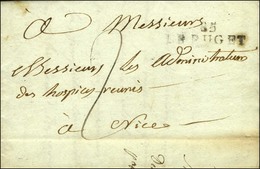 A Messieurs
85
LE PUGET
Messieurs les Administrateurs
des hospices reunis
2
à Nice